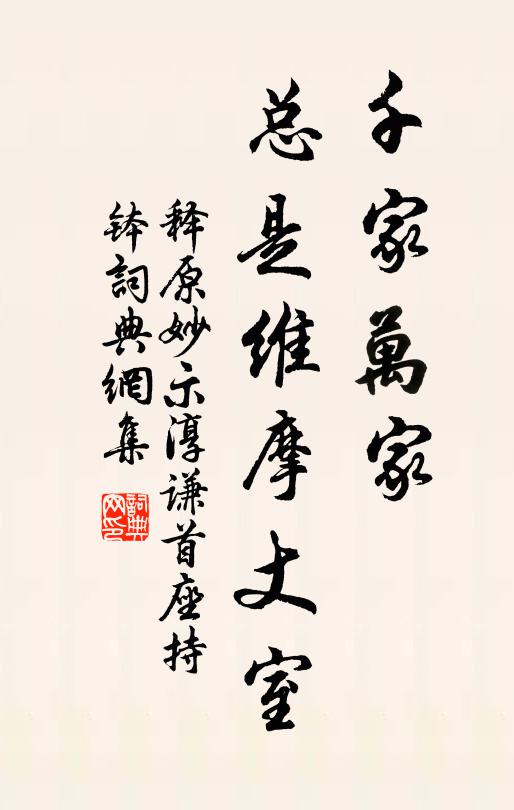 千家萬家
总是维摩丈室
释原妙示淳谦首座持
钵詞典網集
詞典
网印